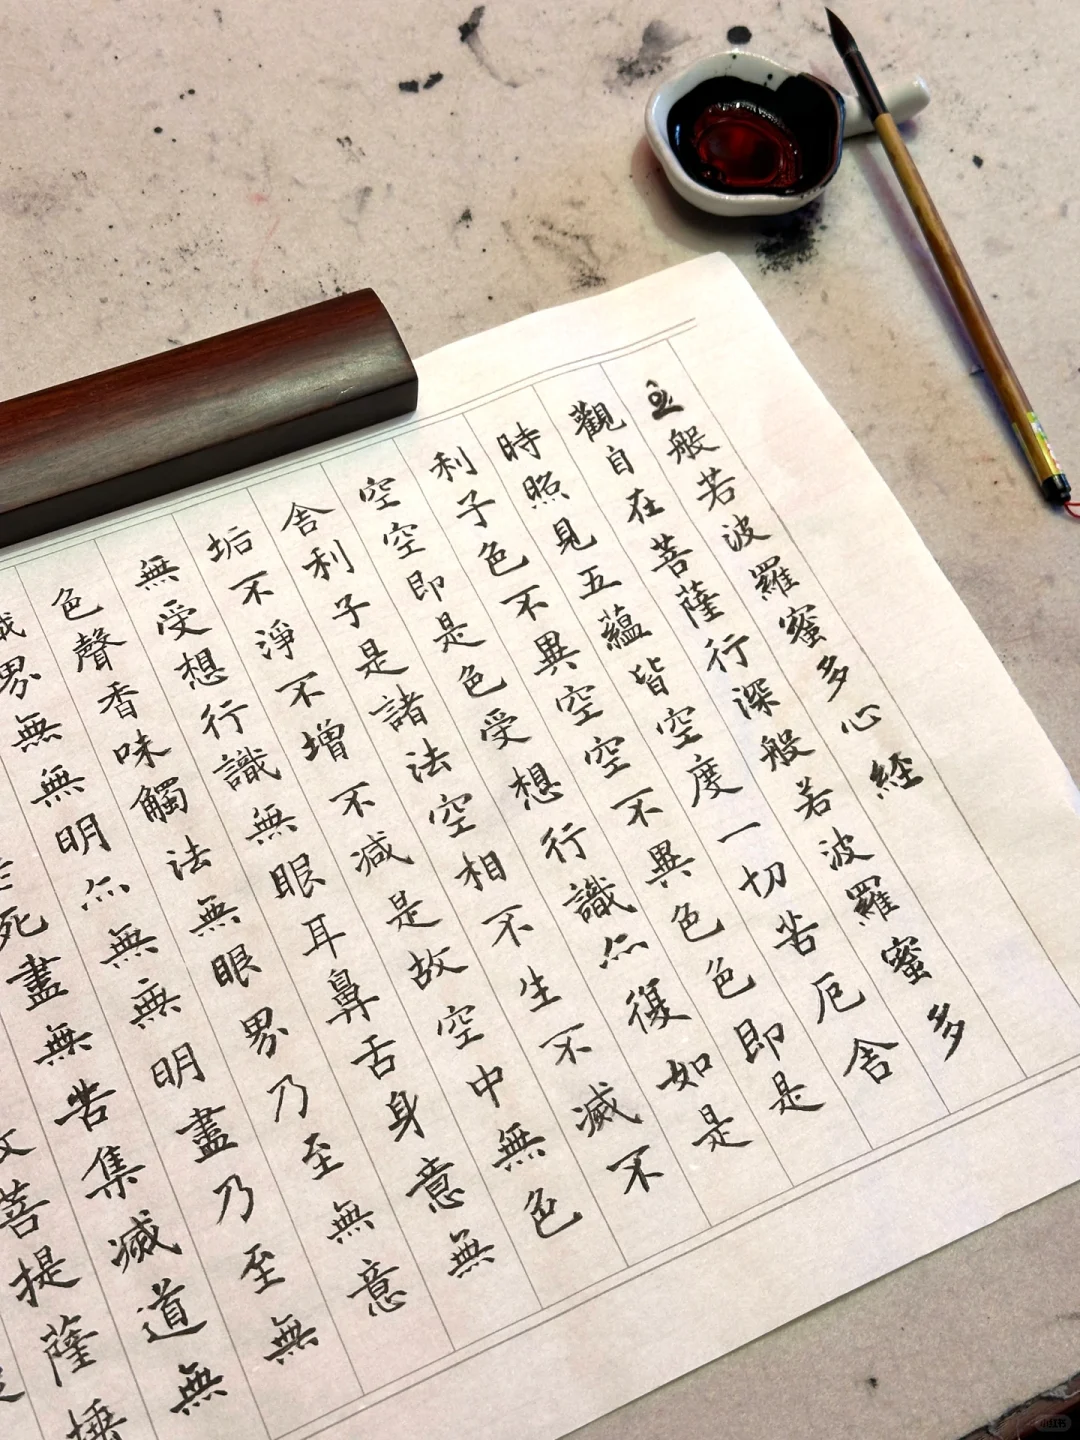 般若波羅蜜多心経
觀自在菩薩行深般若波羅蜜多
時照見五蘊皆空度一切苦厄舍
利子色不異空空不異色色即是
空空即是色受想行識亦復如是
舍利子是諸法空相不生不滅不
垢不淨不增不減是故空中無色
無受想行識無眼耳鼻舌身意無
色聲香味觸法無眼界乃至無意
識界無無明亦無無明盡乃至無
死盡無苦集滅道無
故菩提薩埵
小红书